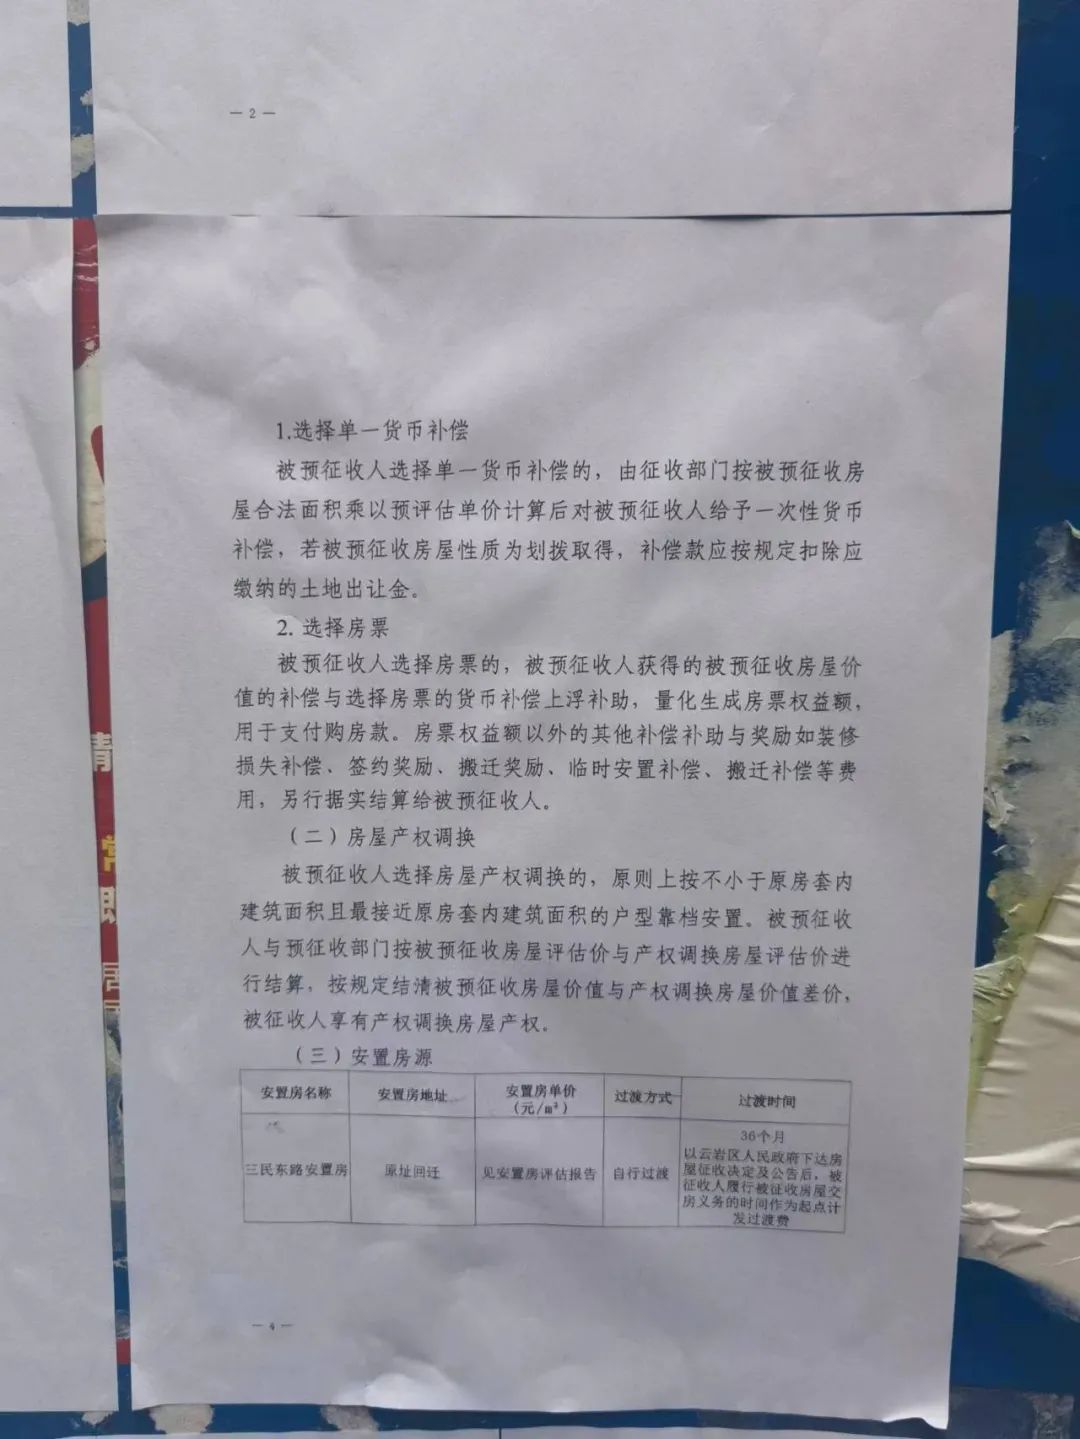 — 2 —
1.选择单一货币补偿
被预征收人选择单一货币补偿的，由征收部门按被预征收房
屋合法面积乘以预评估单价计算后对被预征收人给予一次性货币
补偿，若被预征收房屋性质为划拨取得，补偿款应按规定扣除应
缴纳的土地出让金。
2. 选择房票
被预征收人选择房票的，被预征收人获得的被预征收房屋价
值的补偿与选择房票的货币补偿上浮补助，量化生成房票权益额，
用于支付购房款。房票权益额以外的其他补偿补助与奖励如装修
损失补偿、签约奖励、搬迁奖励、临时安置补偿、搬迁补偿等费
用，另行据实结算给被预征收人。
（二）房屋产权调换
被预征收人选择房屋产权调换的，原则上按不小于原房套内
建筑面积且最接近原房套内建筑面积的户型靠档安置。被预征收
人与预征收部门按被预征收房屋评估价与产权调换房屋评估价进
行结算，按规定结清被预征收房屋价值与产权调换房屋价值差价，
被征收人享有产权调换房屋产权。
（三）安置房源
安置房名称 安置房地址 安置房单价（元/m²） 过渡方式 过渡时间
三民东路安置房 原址回迁 见安置房评估报告 自行过渡 36个月
以云岩区人民政府下达房
屋征收决定及公告后，被
征收人履行被征收房屋交
房义务的时间作为起点计
发过渡费
— 4 —